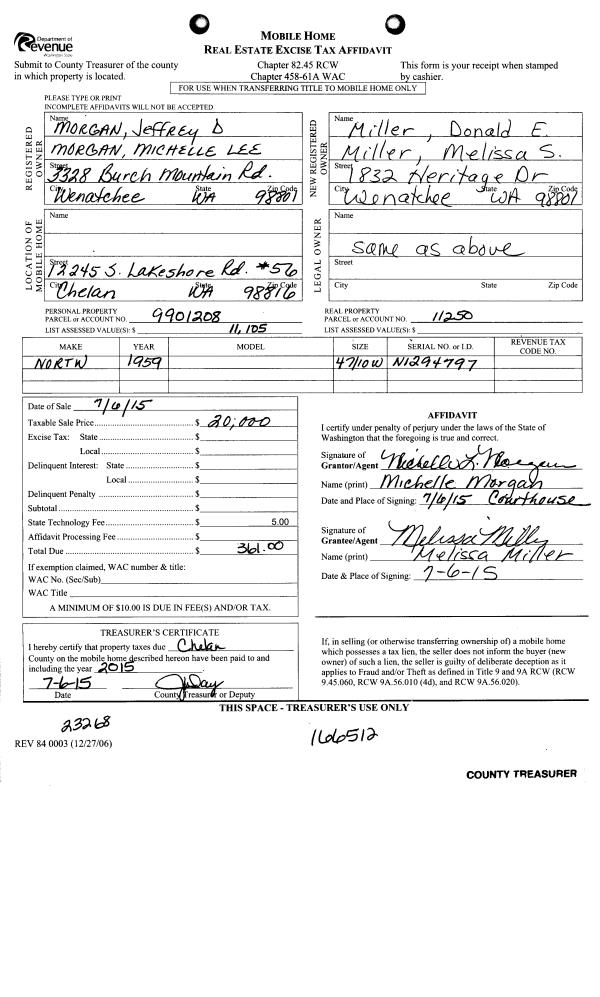 Department of
Revenue
Washington State
MOBILE HOME
REAL ESTATE EXCISE TAX AFFIDAVIT
Submit to County Treasurer of the county
in which property is located.
Chapter 82.45 RCW
Chapter 458-61A WAC
This form is your receipt when stamped
by cashier.
FOR USE WHEN TRANSFERRING TITLE TO MOBILE HOME ONLY
PLEASE TYPE OR PRINT
INCOMPLETE AFFIDAVITS WILL NOT BE ACCEPTED
REGISTERED OWNER
Name
MORGAN, Jeffrey D
MORGAN, MICHELLE LEE
Street
3328 Burch Mountain Rd.
City State Zip Code
Wenatchee WA 98801
NEW REGISTERED OWNER
Name
Miller, Donald E.
Miller, Melissa S.
Street
1832 Heritage Dr
City State Zip Code
Wenatchee WA 98801
LOCATION OF MOBILE HOME
Name
Street
12245 S. Lakeshore Rd. #56
City State Zip Code
Chelan WA 98816
LEGAL OWNER
Name
same as above
Street
City State Zip Code
PERSONAL PROPERTY
PARCEL or ACCOUNT NO. 9901208
LIST ASSESSED VALUE(S): $ 11,105
REAL PROPERTY
PARCEL or ACCOUNT NO. 11250
LIST ASSESSED VALUE(S): $
MAKE YEAR MODEL SIZE SERIAL NO. or I.D. REVENUE TAX CODE NO.
NORTW 1959 47/10W N1294797
Date of Sale 7/6/15
Taxable Sale Price $ 20,000
Excise Tax: State $
Local $
Delinquent Interest: State $
Local $
Delinquent Penalty $
Subtotal $
State Technology Fee $ 5.00
Affidavit Processing Fee $
Total Due $ 361.00
If exemption claimed, WAC number & title:
WAC No. (Sec/Sub)
WAC Title
A MINIMUM OF $10.00 IS DUE IN FEE(S) AND/OR TAX.
AFFIDAVIT
I certify under penalty of perjury under the laws of the State of
Washington that the foregoing is true and correct.
Signature of
Grantor/Agent Michelle L. Morgan
Name (print) Michelle Morgan
Date and Place of Signing: 7/6/15 Courthouse
Signature of
Grantee/Agent Melissa Milly
Name (print) Melissa Miller
Date & Place of Signing: 7-6-15
TREASURER'S CERTIFICATE
I hereby certify that property taxes due Chelan
County on the mobile home described hereon have been paid to and
including the year 2015
7-6-15 JDay
Date County Treasurer or Deputy
If, in selling (or otherwise transferring ownership of) a mobile home
which possesses a tax lien, the seller does not inform the buyer (new
owner) of such a lien, the seller is guilty of deliberate deception as it
applies to Fraud and/or Theft as defined in Title 9 and 9A RCW (RCW
9.45.060, RCW 9A.56.010 (4d), and RCW 9A.56.020).
THIS SPACE - TREASURER'S USE ONLY
23268
REV 84 0003 (12/27/06)
166512
COUNTY TREASURER